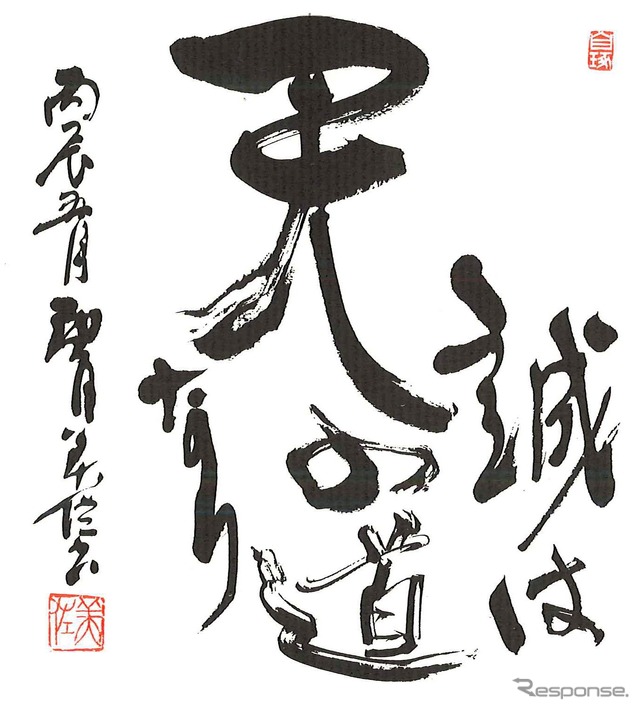 誠は
天の道
なり
丙辰五月
Response.